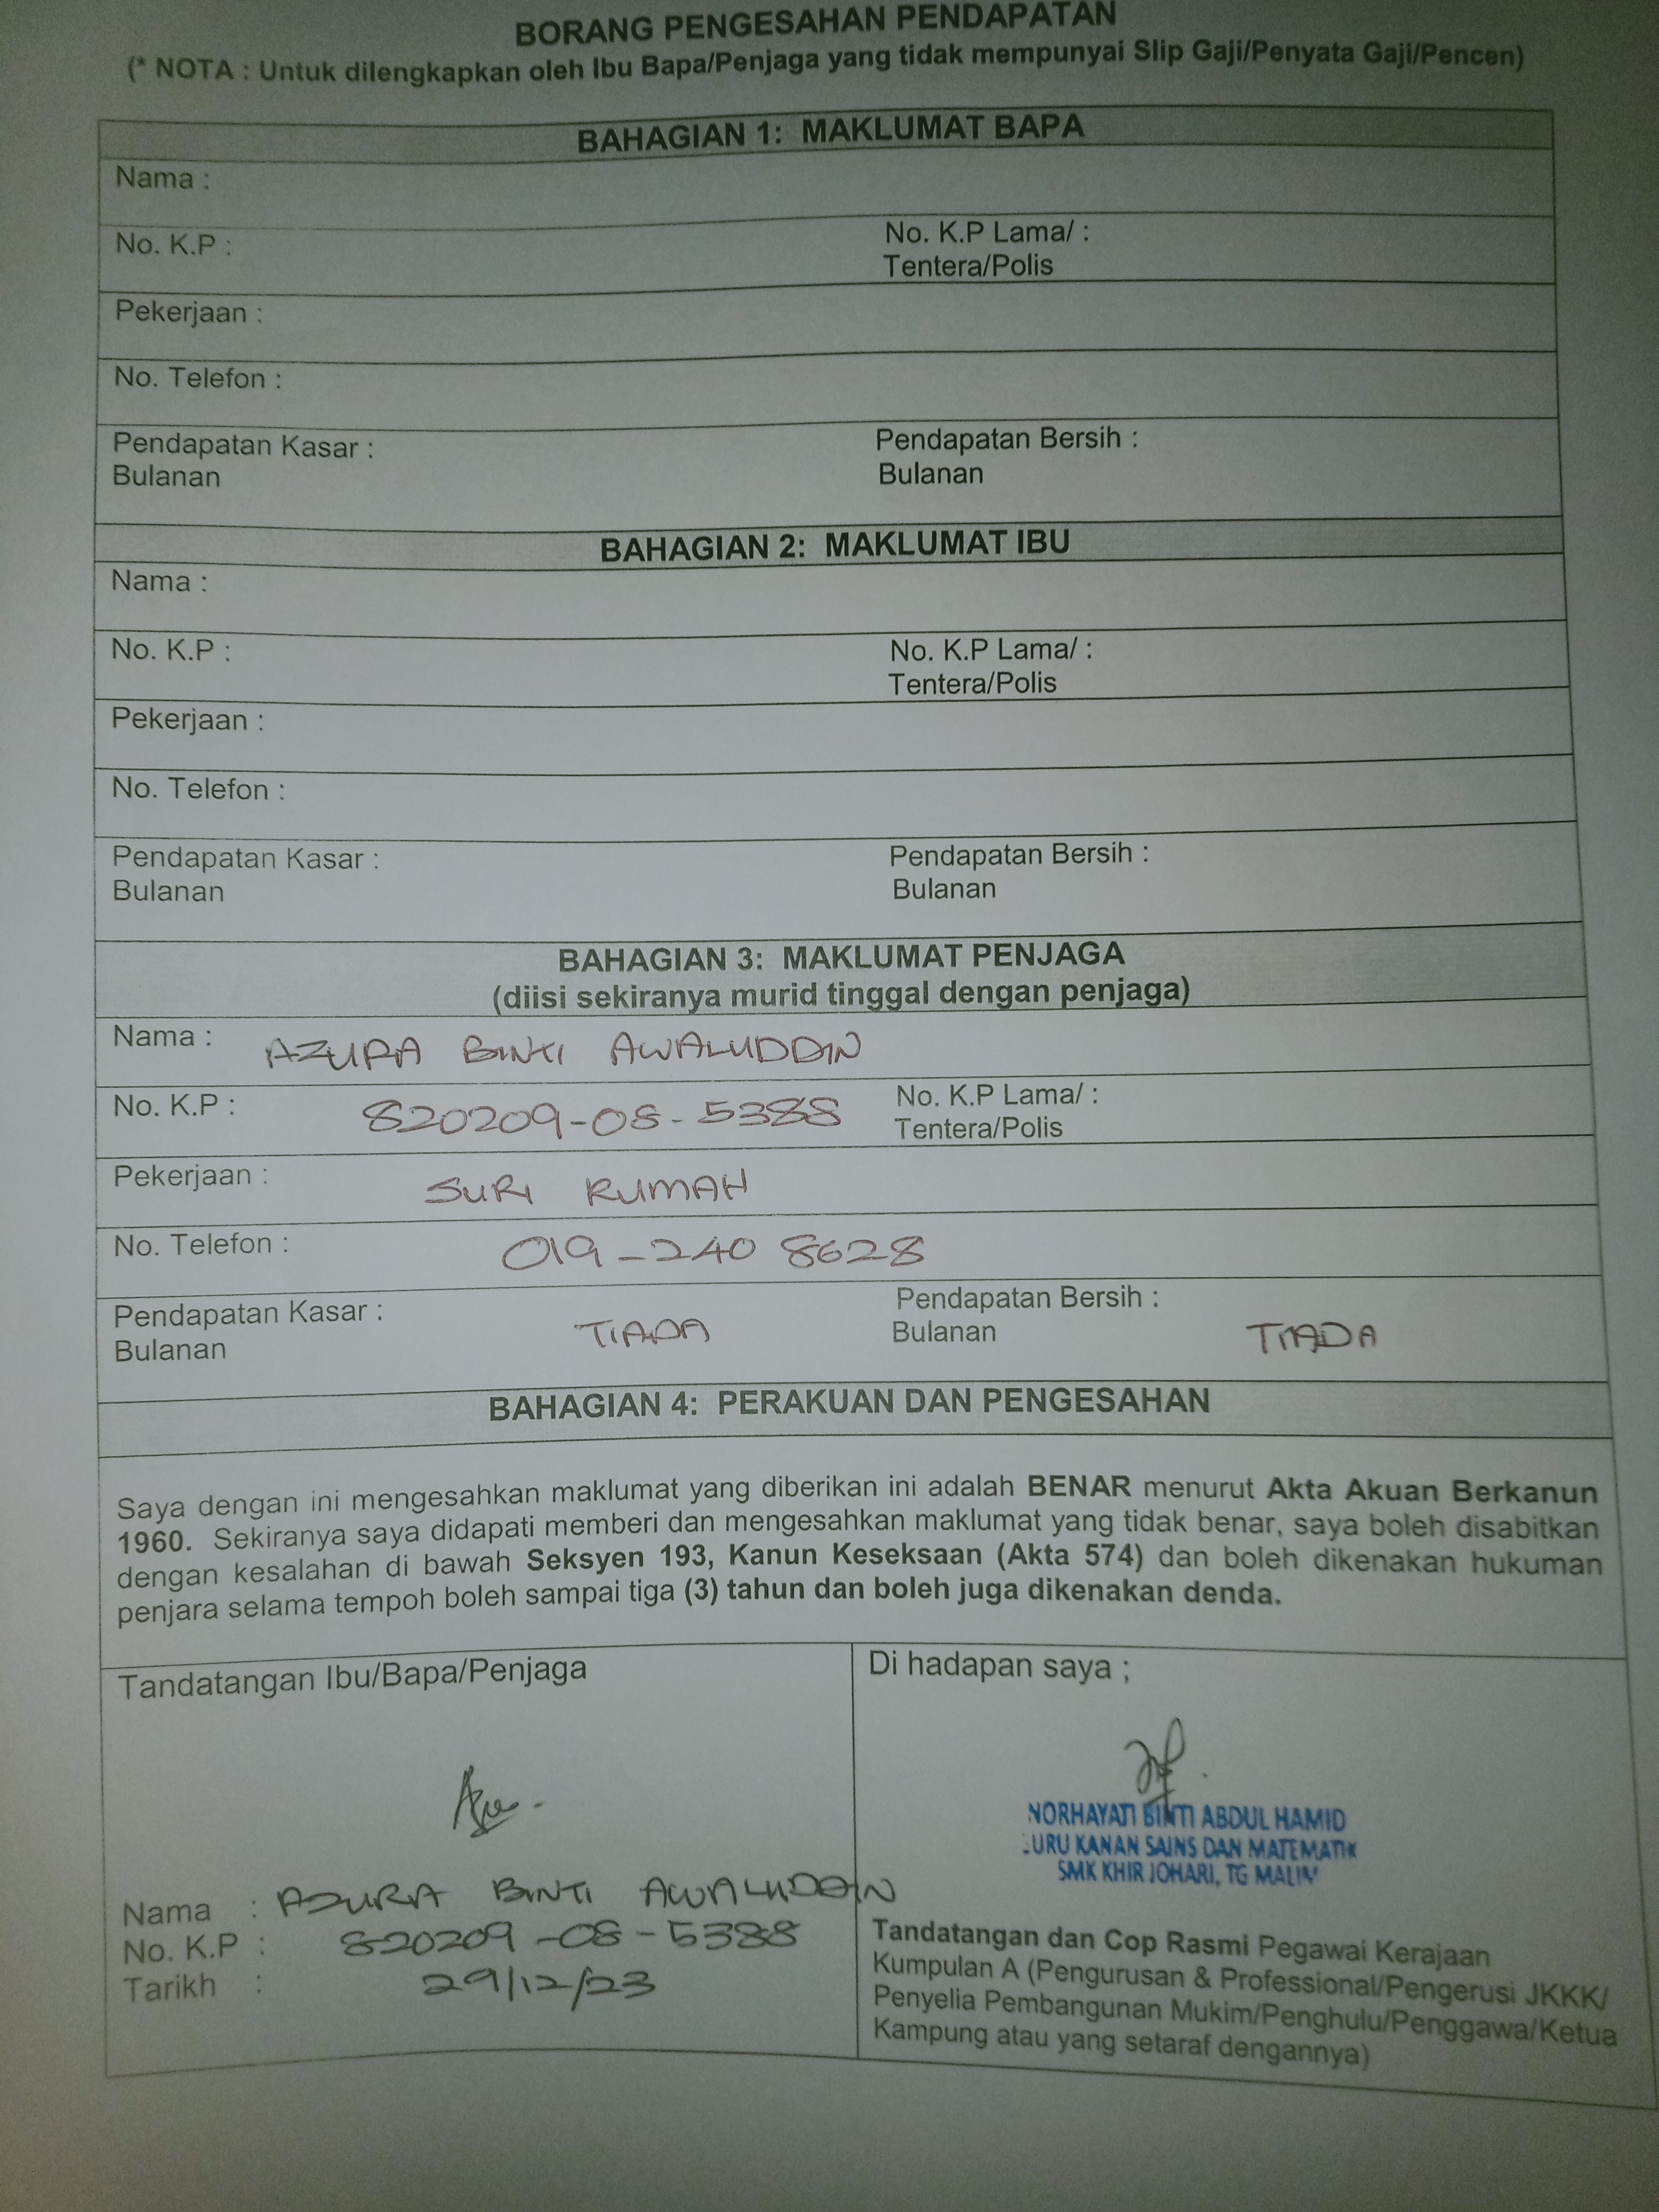 BORANG PENGESAHAN PENDAPATAN
(* NOTA : Untuk dilengkapkan oleh Ibu Bapa/Penjaga yang tidak mempunyai Slip Gaji/Penyata Gaji/Pencen)
BAHAGIAN 1: MAKLUMAT BAPA
Nama :
No. K.P :
No. K.P Lama/ :
Tentera/Polis
Pekerjaan :
No. Telefon :
Pendapatan Kasar :
Bulanan
Pendapatan Bersih :
Bulanan
BAHAGIAN 2: MAKLUMAT IBU
Nama :
No. K.P :
No. K.P Lama/ :
Tentera/Polis
Pekerjaan :
No. Telefon :
Pendapatan Kasar :
Bulanan
Pendapatan Bersih :
Bulanan
BAHAGIAN 3: MAKLUMAT PENJAGA
(diisi sekiranya murid tinggal dengan penjaga)
Nama : AZURA BINTI AWALUDDIN
No. K.P : 820209-08-5388
No. K.P Lama/ :
Tentera/Polis
Pekerjaan : SURI RUMAH
No. Telefon : 019-240 8628
Pendapatan Kasar : TIADA
Bulanan
Pendapatan Bersih :
Bulanan TIADA
BAHAGIAN 4: PERAKUAN DAN PENGESAHAN
Saya dengan ini mengesahkan maklumat yang diberikan ini adalah BENAR menurut Akta Akuan Berkanun
1960. Sekiranya saya didapati memberi dan mengesahkan maklumat yang tidak benar, saya boleh disabitkan
dengan kesalahan di bawah Seksyen 193, Kanun Keseksaan (Akta 574) dan boleh dikenakan hukuman
penjara selama tempoh boleh sampai tiga (3) tahun dan boleh juga dikenakan denda.
Tandatangan Ibu/Bapa/Penjaga
Nama : AZURA BINTI AWALUDDIN
No. K.P : 820209-08-5388
Tarikh : 29/12/23
Di hadapan saya ;
NORHAYATI BINTI ABDUL HAMID
URU KANAN SAINS DAN MATEMATIK
SMK KHIR JOHARI, TG MALIM
Tandatangan dan Cop Rasmi Pegawai Kerajaan
Kumpulan A (Pengurusan & Professional/Pengerusi JKKK/
Penyelia Pembangunan Mukim/Penghulu/Penggawa/Ketua
Kampung atau yang setaraf dengannya)